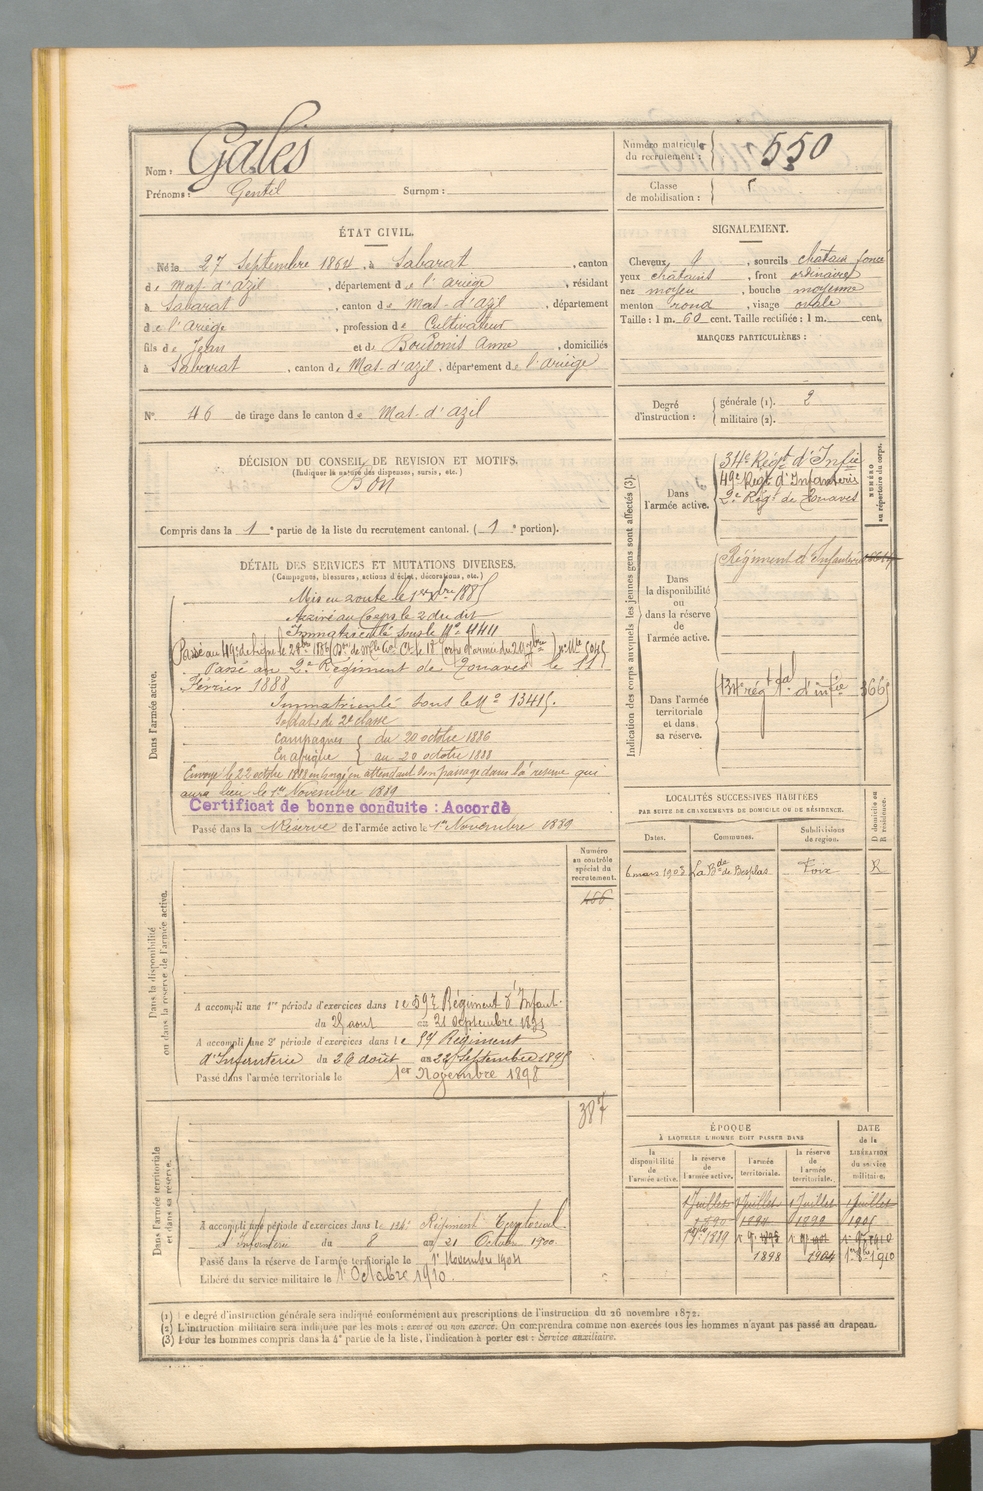 Nom : Galès
Prénoms : Gentil Surnom :
Numéro matricule du recrutement : 550
Classe de mobilisation :
ÉTAT CIVIL.
Né le 27 Septembre 1864, à Sabarat, canton
de Mas-d'azil, département de l'ariège, résidant
à Sabarat, canton de Mas-d'azil, département
de l'Ariège, profession de Cultivateur
fils de Jean et de Boudoms Anne, domiciliés
à Sabarat, canton de Mas-d'azil, département de l'ariège
N° 46 de tirage dans le canton de Mas-d'azil
SIGNALEMENT.
Cheveux, sourcils chatain foncé
yeux chatains, front ordinaire
nez moyen, bouche moyenne
menton rond, visage ovale
Taille : 1 m. 60 cent. Taille rectifiée : 1 m. cent.
MARQUES PARTICULIÈRES :
Degré d'instruction : générale (1). 2
militaire (2).
DÉCISION DU CONSEIL DE REVISION ET MOTIFS.
(Indiquer la nature des dispenses, sursis, etc.)
Bon
Compris dans la 1e partie de la liste du recrutement cantonal. (1e portion).
DÉTAIL DES SERVICES ET MUTATIONS DIVERSES.
(Campagnes, blessures, actions d'éclat, décorations, etc.)
Dans l'armée active.
Mis en route le 1er Xbre 1885
Arrivé au Corps le 2 du dit
Immatriculé sous le N° 4411
Passé au 49e de ligne le
Passé au 2e Régiment de Zouaves le 11
Février 1888
Immatriculé sous le N° 13415.
Soldat de 2e classe
Campagnes { du 20 octobre 1886
En afrique { au 20 octobre 1888
Envoyé le 22 octobre 1888 en congé en attendant son passage dans la réserve qui
aura lieu le 1er Novembre 1889
Certificat de bonne conduite : Accordé
Passé dans la Réserve de l'armée active le 1er Novembre 1889
Indication des corps auxquels les jeunes gens sont affectés (3).
NUMÉRO au répertoire du corps.
Dans l'armée active.
34e Régt d'Infie
49e Régt d'Infanterie
2e Régt de Zouaves
Dans la disponibilité ou dans la réserve de l'armée active.
Régiment d'Infanterie
Dans l'armée territoriale et dans sa réserve.
134e régt tal d'infie 3665
LOCALITÉS SUCCESSIVES HABITÉES
PAR SUITE DE CHANGEMENTS DE DOMICILE OU DE RÉSIDENCE.
Dates. Communes. Subdivisions de région. D domicile ou R résidence.
6 mars 1902 La Bde de Besplas Foix R
Dans la disponibilité ou dans la réserve de l'armée active.
Numéro au contrôle spécial du recrutement.
466
A accompli une 1re période d'exercices dans le 59e Régiment d'Infant.
du 25 aout au 21 septembre 1891
A accompli une 2e période d'exercices dans le 59 Régiment
d'Infanterie du 26 août au 22 Septembre 1895
Passé dans l'armée territoriale le 1er Novembre 1898
Dans l'armée territoriale et dans sa réserve.
387
A accompli une période d'exercices dans le 134e Régiment Territorial
d'Infanterie du 8 au 21 Octobre 1900.
Passé dans la réserve de l'armée territoriale le 1er Novembre 1904
Libéré du service militaire le 1er Octobre 1910.
ÉPOQUE
À LAQUELLE L'HOMME DOIT PASSER DANS
la disponibilité de l'armée active. la réserve de l'armée active. l'armée territoriale. la réserve de l'armée territoriale.
DATE de la LIBÉRATION du service militaire.
1 Juillet 1 Juillet 1 Juillet 1 Juillet
1890 1899 1905
1889 1910
1898 1904 1910
(1) Le degré d'instruction générale sera indiqué conformément aux prescriptions de l'instruction du 26 novembre 1872.
(2) L'instruction militaire sera indiquée par les mots : exercé ou non exercé. On comprendra comme non exercés tous les hommes n'ayant pas passé au drapeau.
(3) Pour les hommes compris dans la 4e partie de la liste, l'indication à porter est : Service auxiliaire.